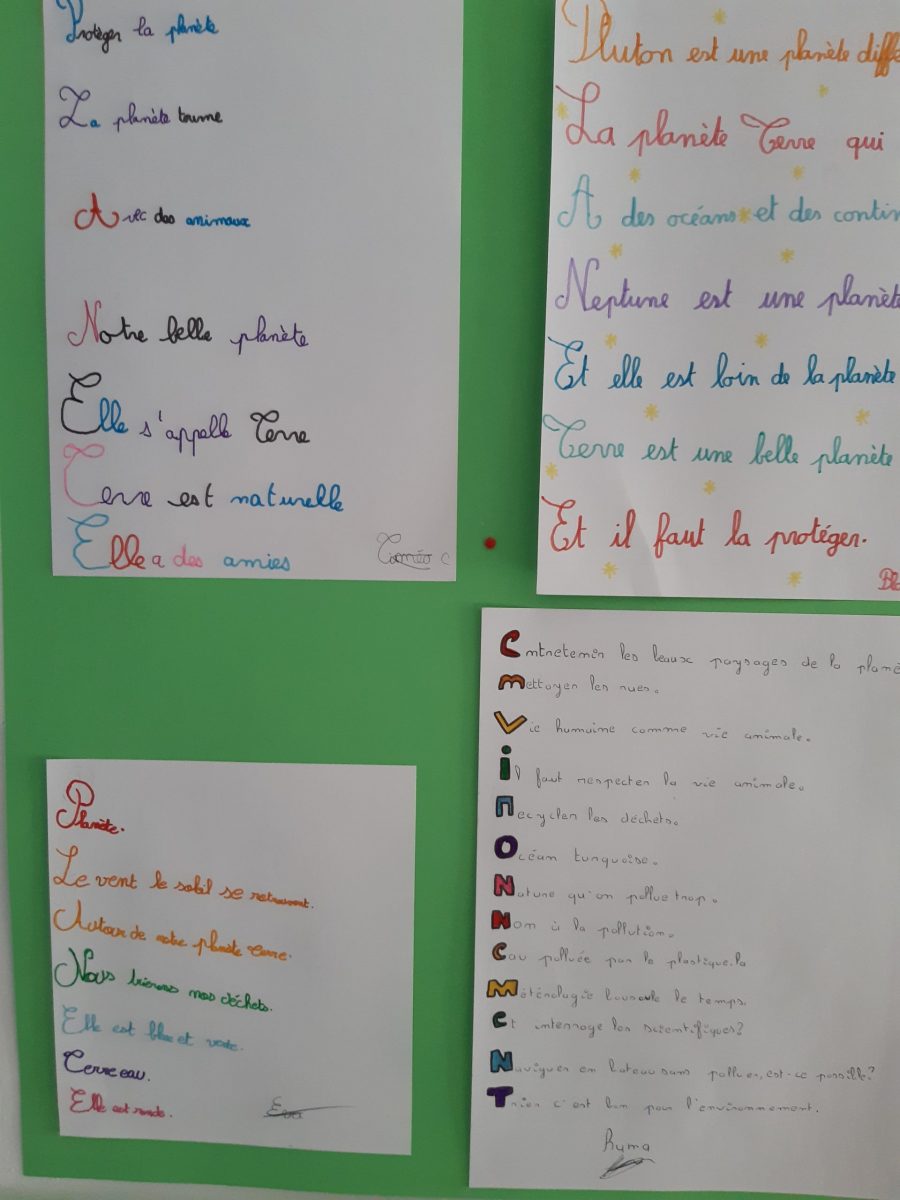 Protéger la planète
La planète tourne
Avec des animaux
Notre belle planète
Elle s'appelle Terre
Terre est naturelle
Elle a des amies
Timéo C
Pluton est une planète diffé
La planète Terre qui
A des océans et des contin
Neptune est une planète
Et elle est loin de la planète
Terre est une belle planète
Et il faut la protéger.
Planète.
Le vent le soleil se retrouvent.
Autour de notre planète Terre.
Nous trierons nos déchets.
Elle est bleu et verte.
Terre eau.
Elle est ronde.
Eva
Entretenir les beaux paysages de la planè
nettoyer les rues.
Vie humaine comme vie animale.
il faut respecter la vie animale.
recycler les déchets.
Océan turquoise.
Nature qu'on pollue trop.
Non à la pollution.
Eau polluée par le plastique.
Météréologie bouscule le temps.
Et interroge les scientifiques?
Naviguer en bateau sans polluer, est-ce possible?
Trier c'est bon pour l'environnement.
Ryma